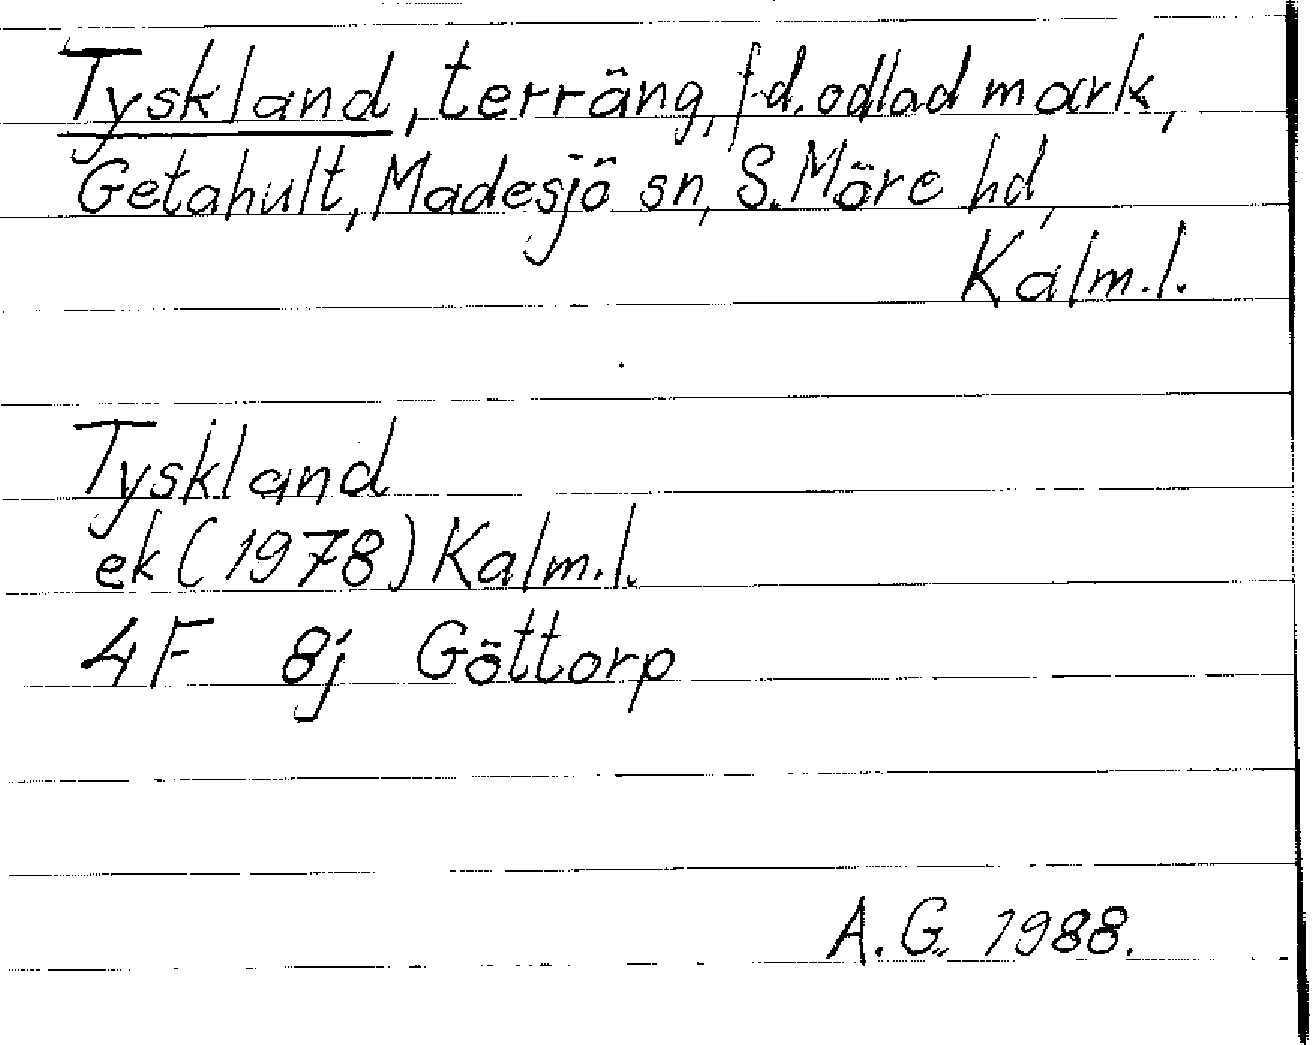 Tyskland, terräng, f.d. odlad mark,
Getahult, Madesjö sn, S. Möre hd,
Kalm.l.
Tyskland
ek (1978) Kalm.l.
4F 8j Göttorp
A.G. 1988.